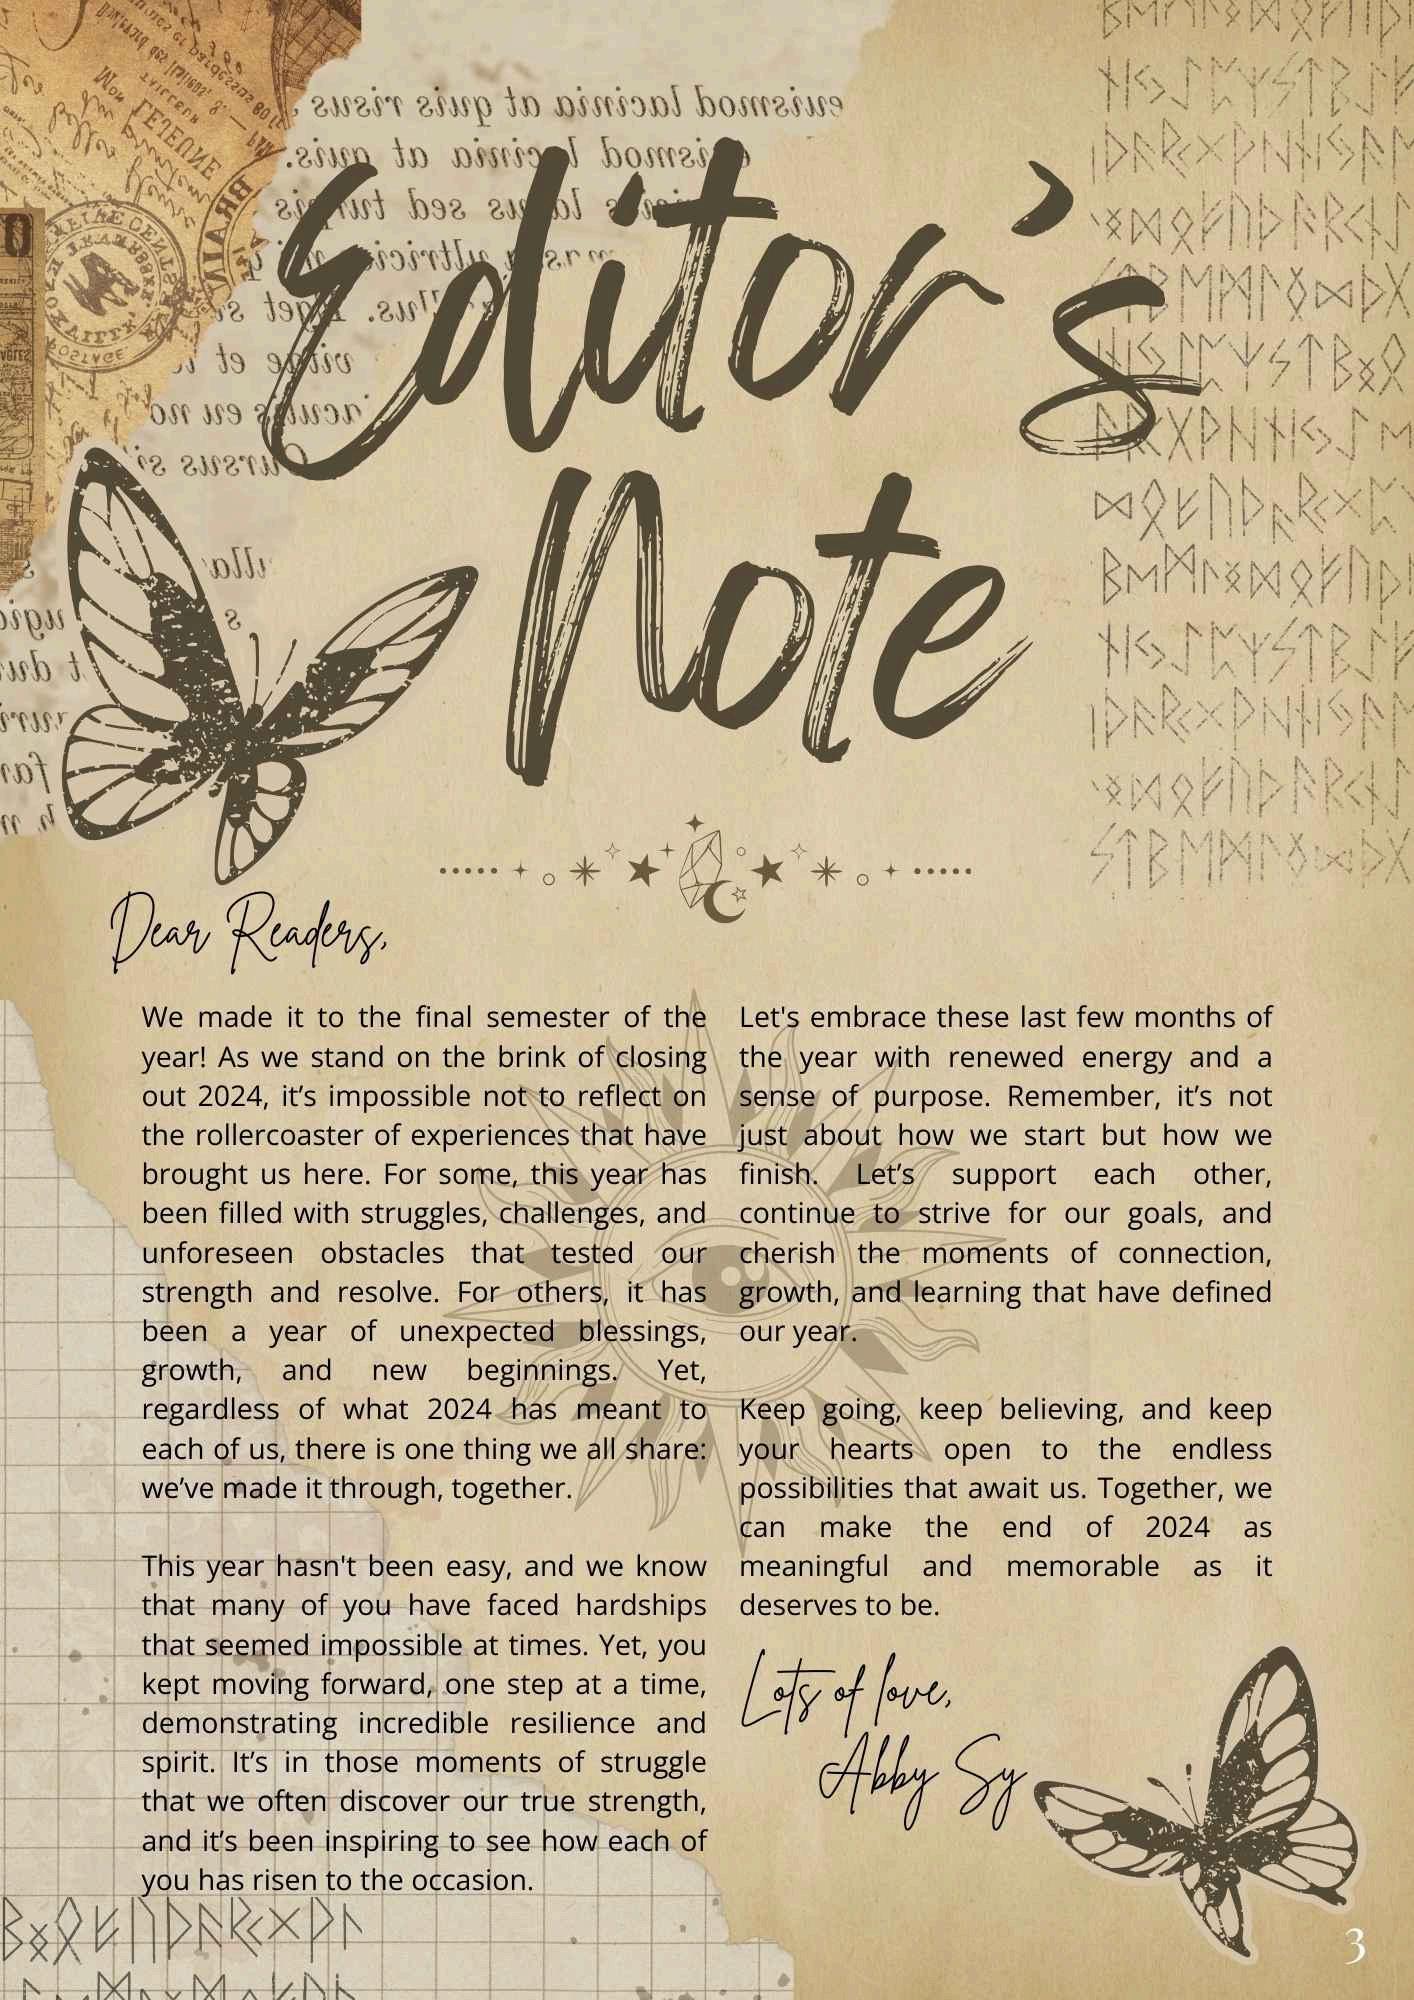 Editor's
Note
Dear Readers,
We made it to the final semester of the
year! As we stand on the brink of closing
out 2024, it’s impossible not to reflect on
the rollercoaster of experiences that have
brought us here. For some, this year has
been filled with struggles, challenges, and
unforeseen obstacles that tested our
strength and resolve. For others, it has
been a year of unexpected blessings,
growth, and new beginnings. Yet,
regardless of what 2024 has meant to
each of us, there is one thing we all share:
we’ve made it through, together.
This year hasn't been easy, and we know
that many of you have faced hardships
that seemed impossible at times. Yet, you
kept moving forward, one step at a time,
demonstrating incredible resilience and
spirit. It’s in those moments of struggle
that we often discover our true strength,
and it’s been inspiring to see how each of
you has risen to the occasion.
Let's embrace these last few months of
the year with renewed energy and a
sense of purpose. Remember, it’s not
just about how we start but how we
finish. Let’s support each other,
continue to strive for our goals, and
cherish the moments of connection,
growth, and learning that have defined
our year.
Keep going, keep believing, and keep
your hearts open to the endless
possibilities that await us. Together, we
can make the end of 2024 as
meaningful and memorable as it
deserves to be.
Lots of love,
Abby Sy
3